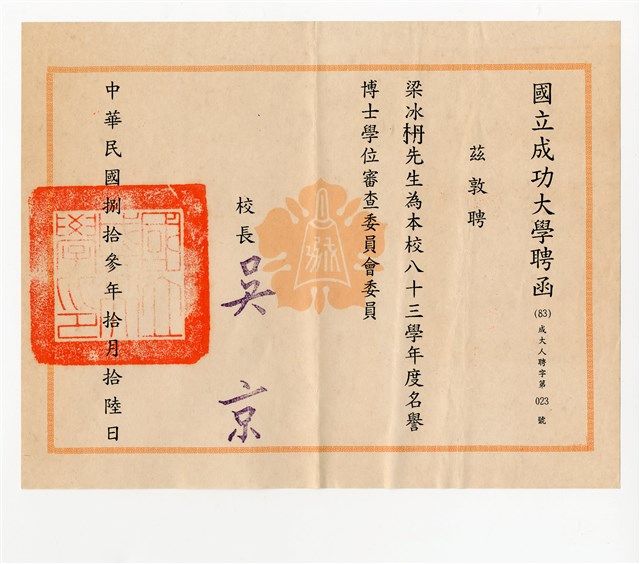 國立成功大學聘函 (83)成大人聘字第023號
茲敦聘
梁冰枏先生為本校八十三學年度名譽
博士學位審查委員會委員
校長 吳京
中華民國捌拾參年拾月拾陸日